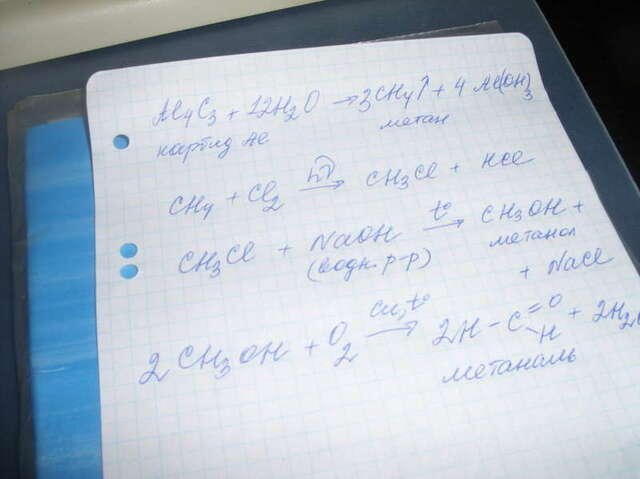 Al₄C₃ + 12H₂O → 3CH₄↑ + 4 Al(OH)₃
карбид Al метан
CH₄ + Cl₂ hν → CH₃Cl + HCl
CH₃Cl + NaOH t° → CH₃OH +
(водн. р-р) метанол
+ NaCl
2 CH₃OH + O₂ Cu, t° → 2H-C=O H + 2H₂O
метаналь